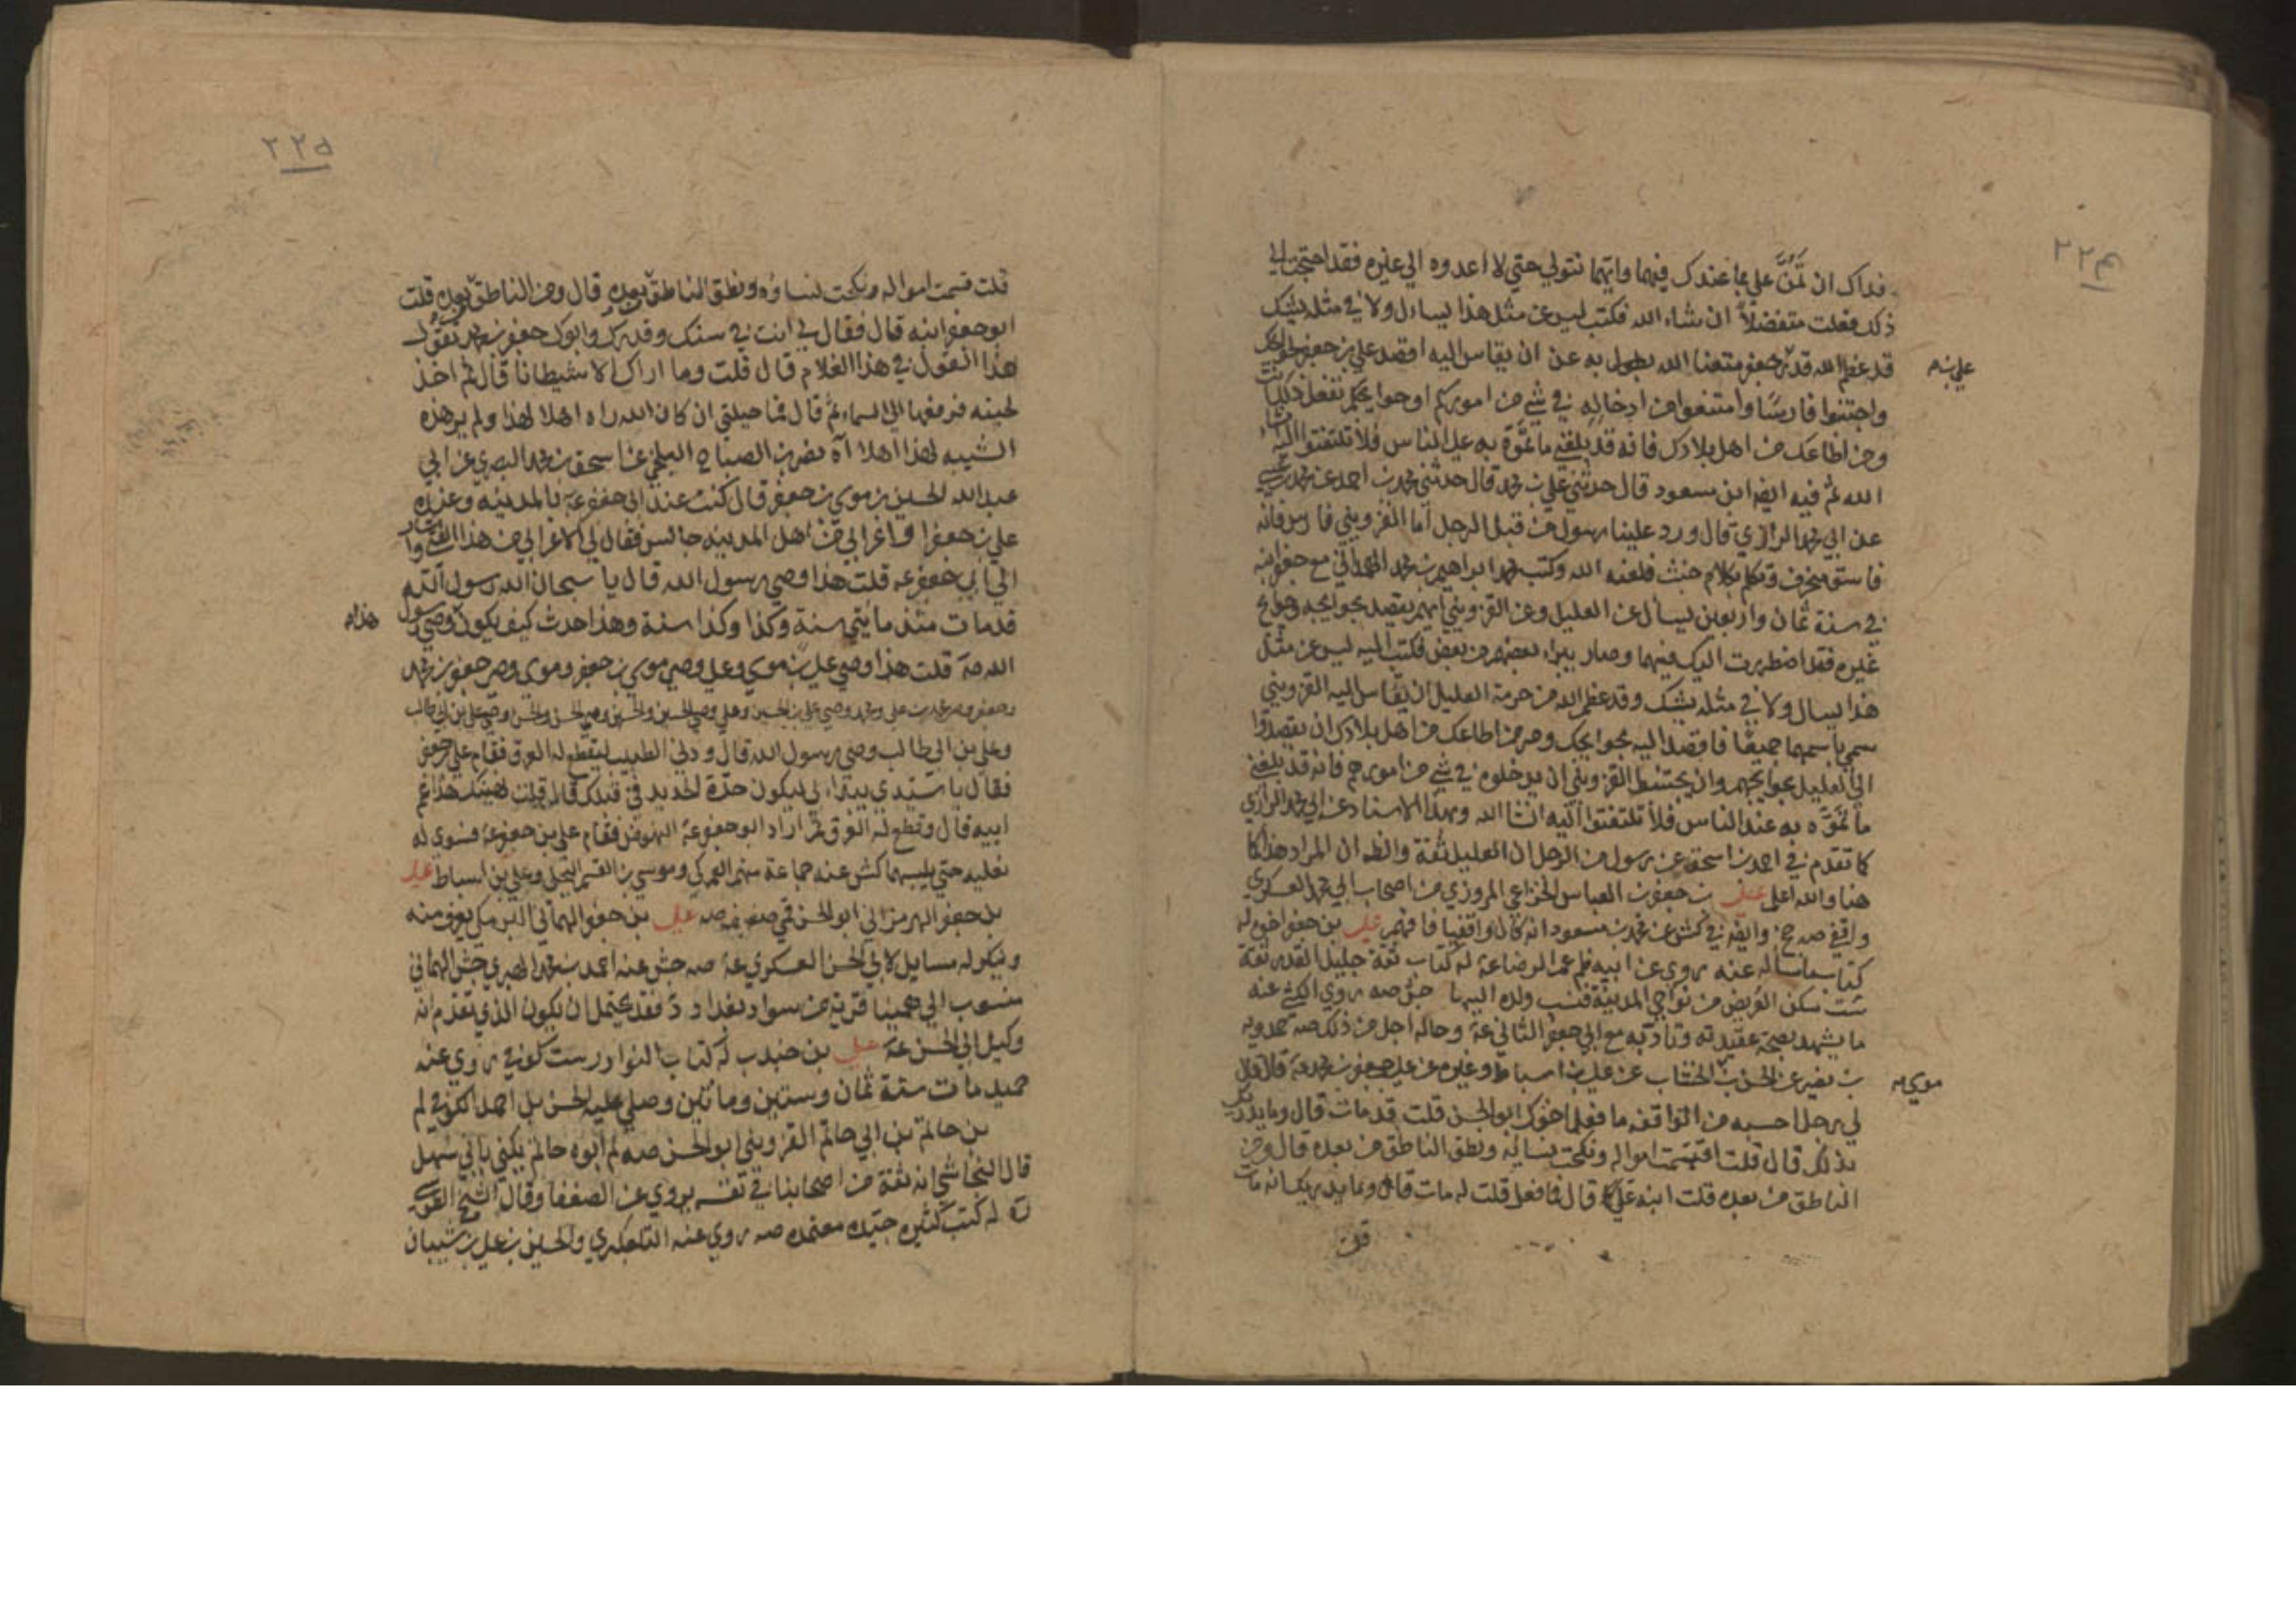 ٢٢٤
فداك ان تمن علي بما عندك فيهما وايهما نتولي حتي لا اعدوه الي غيره فقد احتجت الي
ذلك فعلت متفضلاً ان شاء الله فكتب ليس عن مثل هذا يسأل ولا في مثله يشك
قد عظم الله قدر بن جعفر متعنا الله به عن ان يقاس اليه اقصد علي بن جعفر بحوائجك
علي بن
واجتنبوا فارسًا وامتنعوا من ادخاله في شئ من اموركم او حوايجكم تفعل ذلك انت
ومن اطاعك من اهل بلادك فانه قد بلغني ما تموّه به علي الناس فلا تلتفتوا اليه ان شاء
الله ثم فيه ايضا ابن مسعود قال حدثني علي بن محمد قال حدثني محمد بن احمد عن محمد بن عيسي
عن ابي محمد الرازي قال ورد علينا رسول من قبل الرجل أما القزويني فارس فانه
فاسق منحرف وتكلم بكلام خبث فلعنه الله وكتب ابراهيم بن محمد الهمداني مع جعفر ابنه
في سنة ثمان واربعين يسأل عن العليل وعن القزويني ايهم يقصد بحوايجه وحوايج
غيره فقد اضطربت اليك فيهما وصار يبراء بعضهم من بعض فكتب اليه ليس عن مثل
هذا يسال ولا في مثله يشك وقد عظم الله من حرمة العليل ان يقاس اليه القزويني
سمي باسمهما جميعًا فاقصد اليه بحوايجك ومن اطاعك من اهل بلادك ان يقصدوا
الي العليل بحوايجهم وان يجتنبوا القزويني ان يدخلوه في شئ من امورهم فانه قد بلغني
ما تموّه به عند الناس فلا تلتفتوا اليه انشا الله وبهذا الاسناد عن ابي محمد الرازي
كما تقدم في احمد بن اسحق عن رسول من الرجل ان العليل ثقة والظ ان المراد هذا كما
هنا والله اعلم علي بن جعفر بن العباس الخزاعي المروزي من اصحاب ابي محمد العسكري
واقفي صه ج وايضه في كش عن محمد بن مسعود انه كان واقفيا فافهم علي بن جعفر اخوه له
كتاب ما سأله عنه روي عن ابيه ظم عم الرضا عه له كتاب ثقة جليل القدر ثقة
ست سكن العريض من نواحي المدينة فنسب ولده اليها جش صه روي الكشي عنه
ما يشهد بصحة عقيدته وتأدبه مع ابي جعفر الثاني عه وحاله اجل من ذلك صه حمدويه
بن نصير عن الحسن بن الخشاب عن علي بن اسباط وغيره عن علي بن جعفر بن محمد عه قال قال
موسي
لي رجل احسبه من الواقفه ما فعل اخوك ابو الحسن قلت قد مات قال وما يدريك
بذلك قال قلت اقتسمت امواله ونكحت نساؤه ونطق الناطق من بعده قال ومن
الناطق من بعده قلت ابنه علي قال فما فعل قلت له مات قال وما يدريك انه مات
قلت
٢٢٥
قلت قسمت امواله ونكحت نساؤه ونطق الناطق بعده قال ومن الناطق بعده قلت
ابو جعفر ابنه قال فقال لي انت في سنك وقدرك وابوك جعفر بن محمد تقول
هذا القول في هذا الغلام قال قلت وما اراك الا شيطانا قال ثم اخذ
لحيته فرفعها الي السماء ثم قال فما حيلتي ان كان الله راه اهلا لهذا ولم ير هذه
الشيبه لهذا اهلا آه نصر بن الصباح البلخي عن اسحق بن محمد البصري عن ابي
عبد الله الحسين بن موسي بن جعفر قال كنت عند ابي جعفر عه بالمدينه وعنده
علي بن جعفر واعرابي من اهل المدينه جالس فقال لي الاعرابي من هذا الفتي واشار
الي ابي جعفر عه قلت هذا وصي رسول الله قال يا سبحان الله رسول الله
قد مات منذ مأتي سنة وكذا وكذا سنة وهذا حدث كيف يكون وصي رسول
هذا
الله صه قلت هذا وصي علي بن موسي وعلي وصي موسي بن جعفر وموسي وصي جعفر بن محمد
وجعفر وصي محمد بن علي ومحمد وصي علي بن الحسين وعلي وصي الحسين والحسين وصي الحسن والحسن وصي علي بن ابي طالب
وعلي بن ابي طالب وصي رسول الله قال ودني الطبيب ليقطع له العرق فقام علي بن جعفر
فقال يا سيدي يبدأ بي ليكون حدّة الحديد في قبلك قال قلت يهنئك هذا عم
ابيه قال وقطع له العرق ثم اراد ابو جعفر عه النهوض فقام علي بن جعفر عه فسوي له
نعليه حتي يلبسهما كش عنه جماعة منهم العمركي وموسي بن القسم البجلي وعلي بن اسباط علي
بن جعفر الهرمزاني ابو الحسن قمي ضعيف صه علي بن جعفر الهماني البرمكي يعرف منه
وينكر له مسايل لابي الحسن العسكري عه صه جش عنه احمد بن محمد الطبري جش الهماني
منسوب الي همينا قرية من سواد بغداد د فقد يحتمل ان يكون الذي تقدم انه
وكيل ابي الحسن عه علي بن جندب له كتاب النوادر ست كوفي روي عنه
حميد مات سنة ثمان وستين ومائتين وصلي عليه الحسن بن احمد الكوفي لم
بن حاتم بن ابي حاتم القزويني ابو الحسن صه لم ابوه حاتم يكني بابي سهل
قال النجاشي انه ثقة من اصحابنا في نفسه يروي عن الضعفا وقال الشيخ الطوسي
له كتب كثيره جيده معتمده صه روي عنه التلعكبري والحسين بن علي بن شيبان